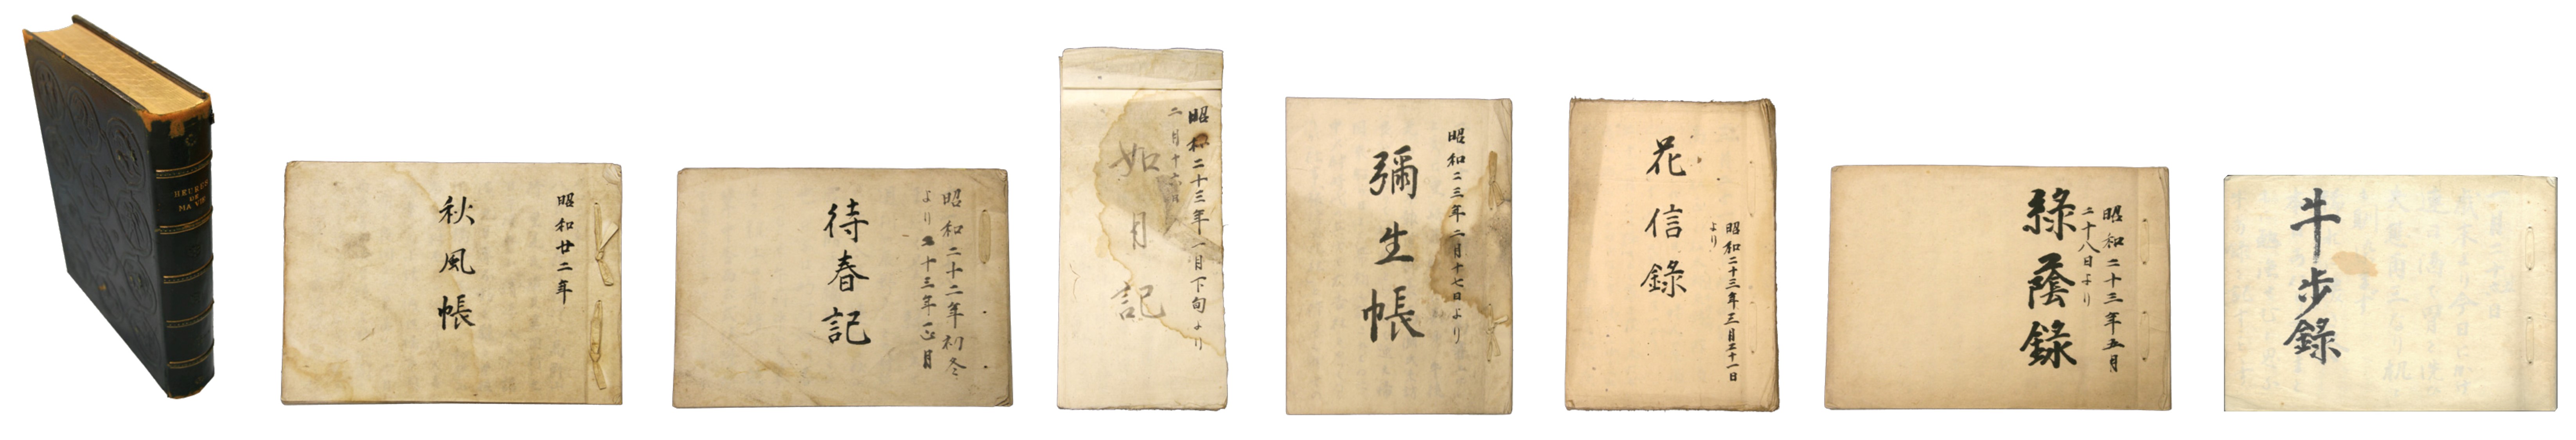 HEURES
DE
MA VIE
昭和廿二年
秋風帳
昭和二十二年初冬
より二十三年正月
待春記
昭和二十三年一月下旬より
二月十六日
如月記
昭和二三年二月十七日より
彌生帳
昭和二十三年三月二十一日
より
花信錄
昭和二十三年五月
二十八日より
綠蔭錄
牛步錄